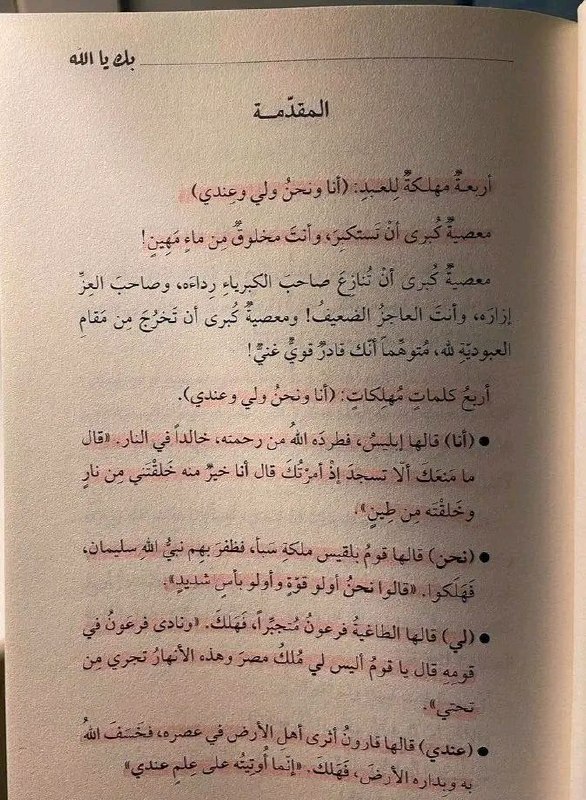 بك يا الله
المقدّمـة
أربعةٌ مهلكةٌ لِلعبدِ: (أنا ونحنُ ولي وعِندي)
معصيةٌ كُبرى أنْ تَستكبِرَ، وأنتَ مخلوقٌ مِن ماءٍ مَهِينٍ!
معصيةٌ كُبرى أنْ تُنازِعَ صاحبَ الكبرياءِ رِداءَه، وصاحبَ العِزِّ
إزارَه، وأنتَ العاجزُ الضعيفُ! ومعصيةٌ كُبرى أن تَخرُجَ مِن مَقامِ
العبوديّةِ لله، مُتوهِّماً أنّك قادرٌ قويٌّ غنيٌّ!
أربعُ كلماتٍ مُهلِكاتٍ: (أنا ونحنُ ولي وعندي).
● (أنا) قالها إبليسُ، فطردَه اللهُ من رحمته، خالداً في النار. «قال
ما مَنَعَك ألّا تسجدَ إذْ أمرْتُكَ قال أنا خيرٌ منه خَلقْتَني مِن نارٍ
وخَلقْتَه مِن طِينٍ»،
● (نحن) قالها قومُ بلقيس ملكةِ سَبأ، فظفرَ بِهِم نبيُّ اللهِ سليمان،
فَهَلَكوا. «قالوا نحنُ أولو قوّةٍ وأولو بأسٍ شديدٍ».
● (لي) قالها الطاغيةُ فرعونُ مُتجبِّراً، فَهَلكَ. «ونادى فرعونُ في
قومِهِ قال يا قومُ أليس لي مُلكُ مصرَ وهذه الأنهارُ تجري مِن
تحتي».
● (عندي) قالها قارونُ أثرى أهلِ الأرضِ في عصره، فخَسَفَ اللهُ
به وبداره الأرضَ، فَهَلكَ. «إنّما أُوتِيتُه على عِلمٍ عندي»